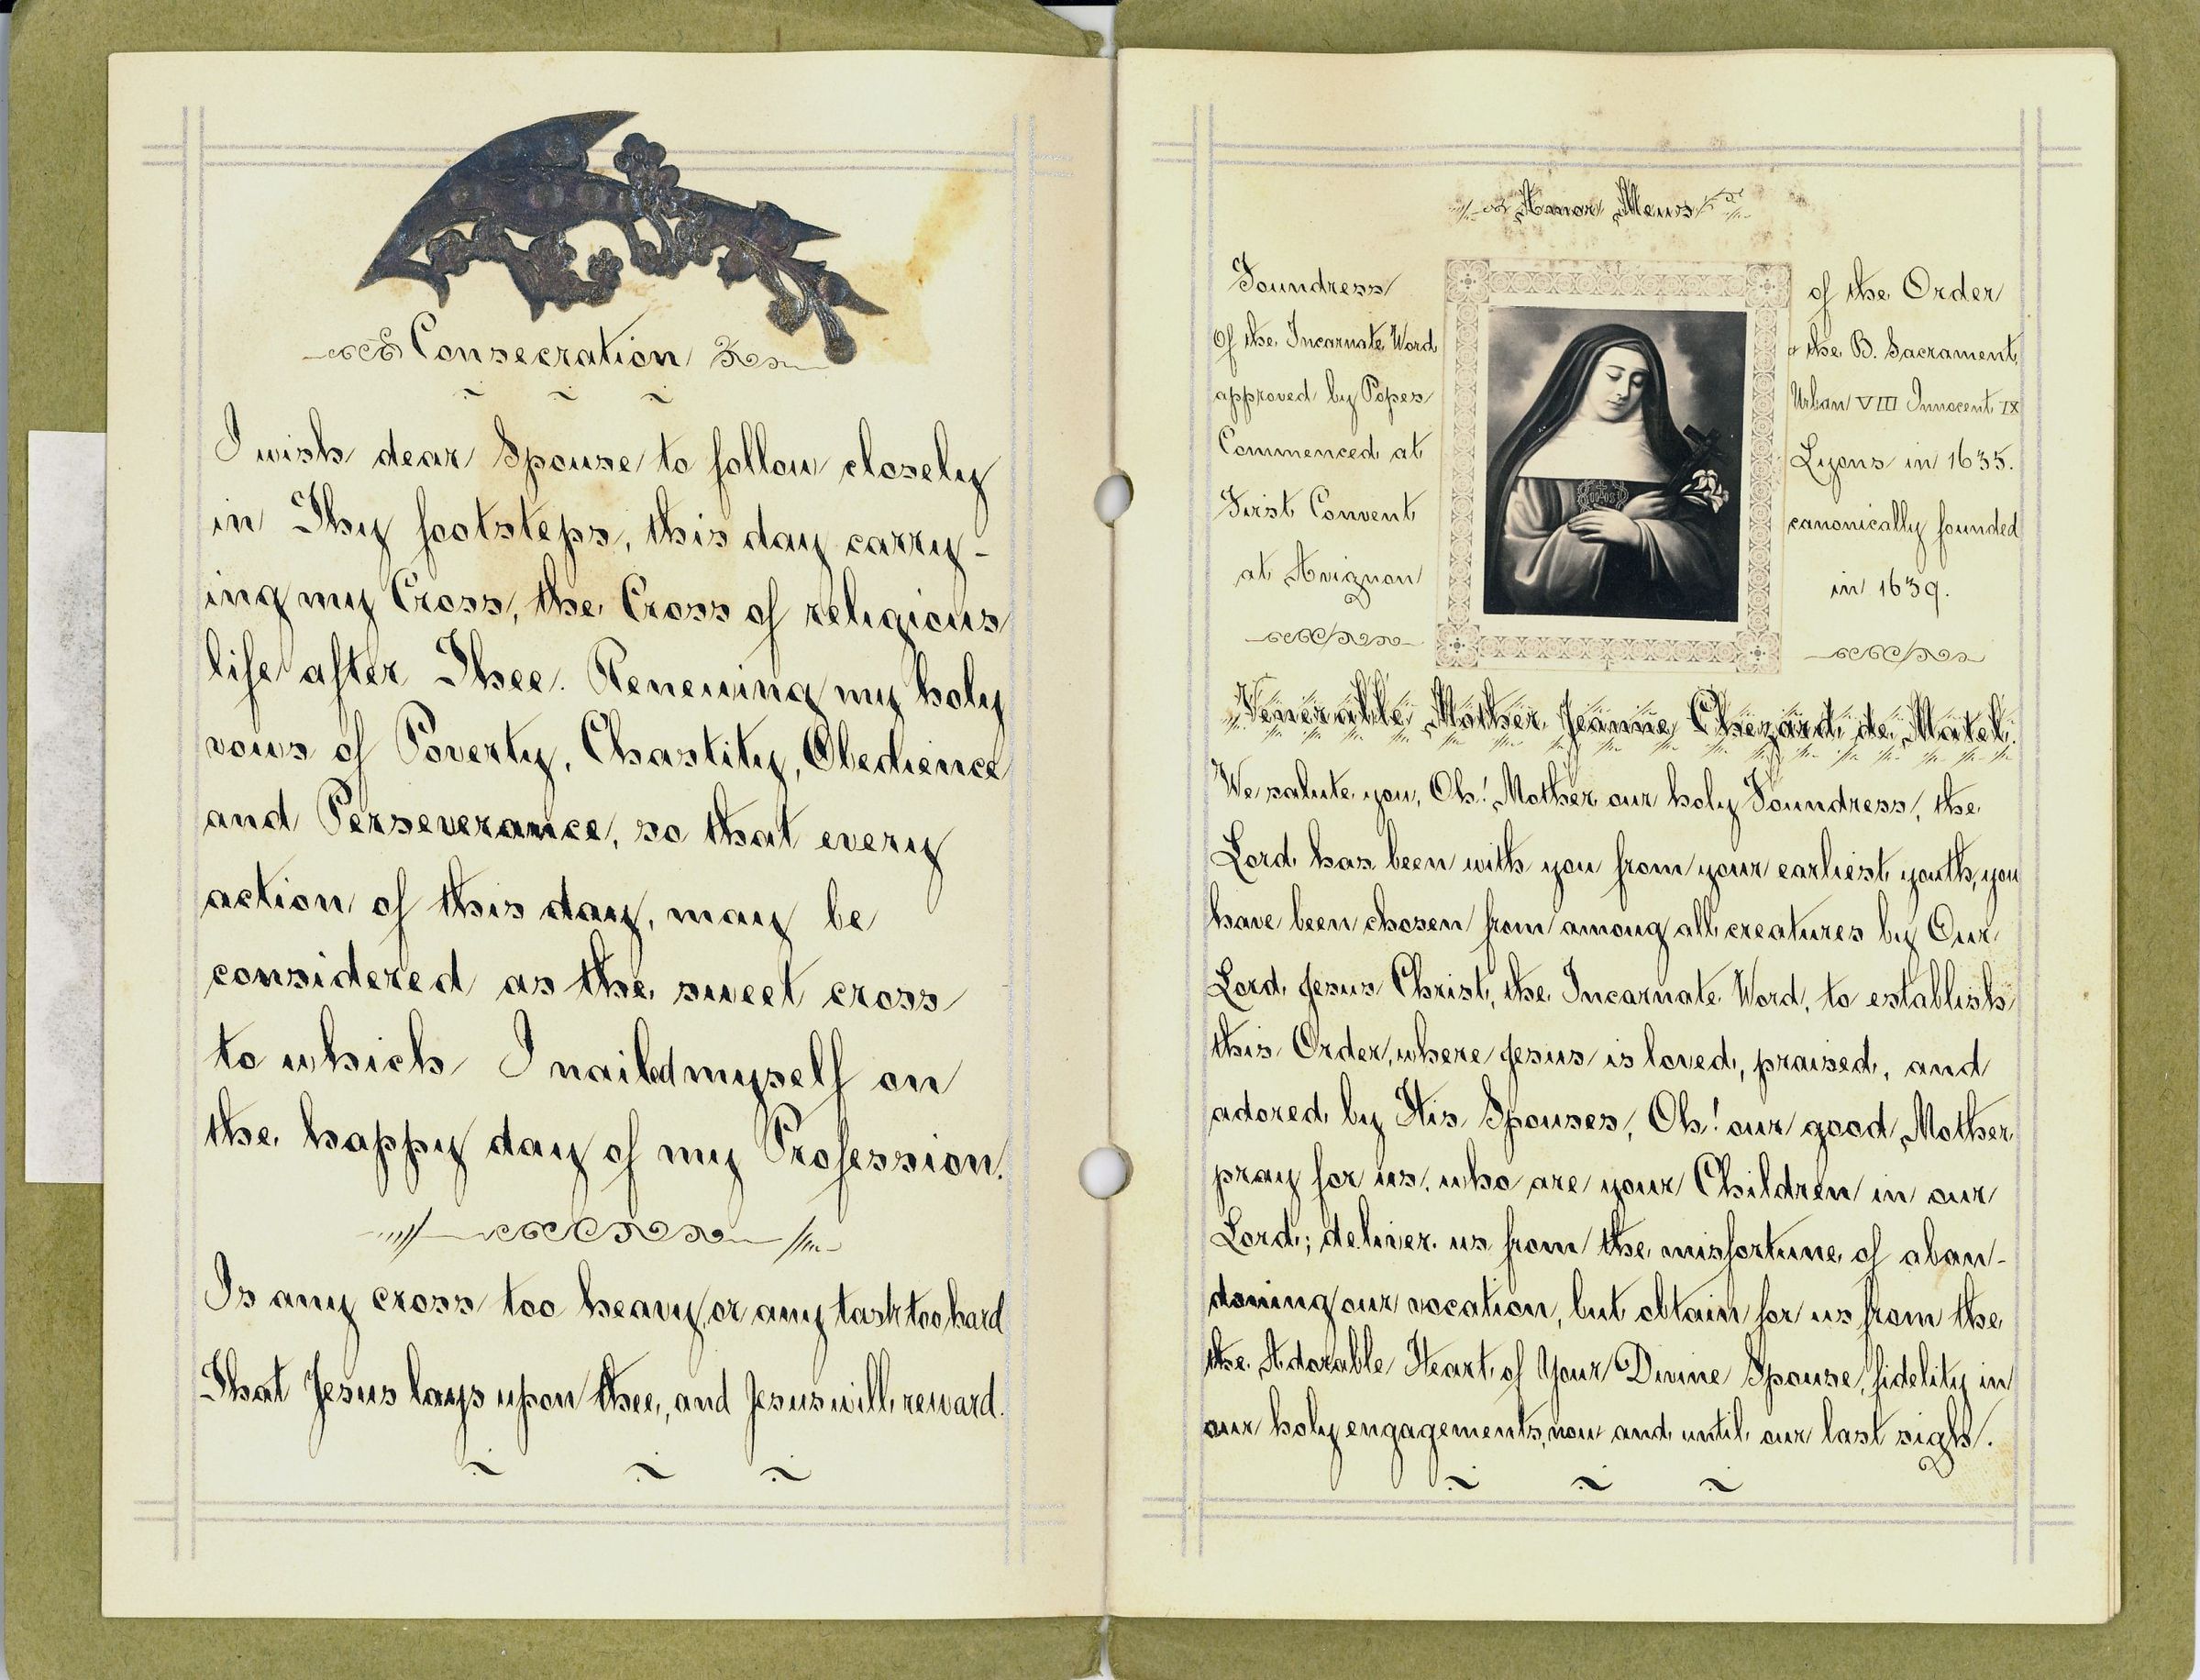 Consecration
I wish dear Spouse to follow closely
in Thy footsteps, this day carry-
ing my Cross, the Cross of religious
life after Thee. Renewing my holy
vows of Poverty, Chastity, Obedience
and Perseverance, so that every
action of this day, may be
considered as the sweet cross
to which I nailed myself on
the happy day of my Profession.
Is any cross too heavy, or any task too hard
That Jesus lays upon thee, and Jesus will reward.
Amor Meus
Foundress of the Order
Of the Incarnate Word & the B. Sacrament
approved by Popes Urban VIII Innocent IX
Commenced at Lyons in 1635.
First Convent canonically founded
at Avignon in 1639.
Venerable Mother Jeanne Chezard de Matel.
We salute you, Oh! Mother our holy Foundress, the
Lord has been with you from your earliest youth, you
have been chosen from among all creatures by Our
Lord Jesus Christ, the Incarnate Word, to establish
this Order, where Jesus is loved, praised, and
adored by His Spouses, Oh! our good Mother
pray for us, who are your Children in our
Lord; deliver us from the misfortune of aban-
doning our vocation, but obtain for us from the
the Adorable Heart of Your Divine Spouse, fidelity in
our holy engagements, now and until our last sigh.